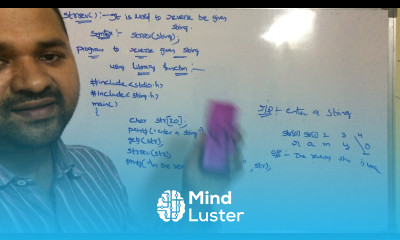 strrev() :- It is used to reverse the given
string.
Syntax :- strrev(string);
Program to reverse given string
using Library function :-
#include<stdio.h>
#include<string.h>
main()
{
char str[20];
printf("enter a string
gets(str);
strrev(str);
printf("\n The
", str);
I/P :- enter a string
str[0] str[1] 2 3 4
r a m y \0
O/P :- The the
Mind
Luster